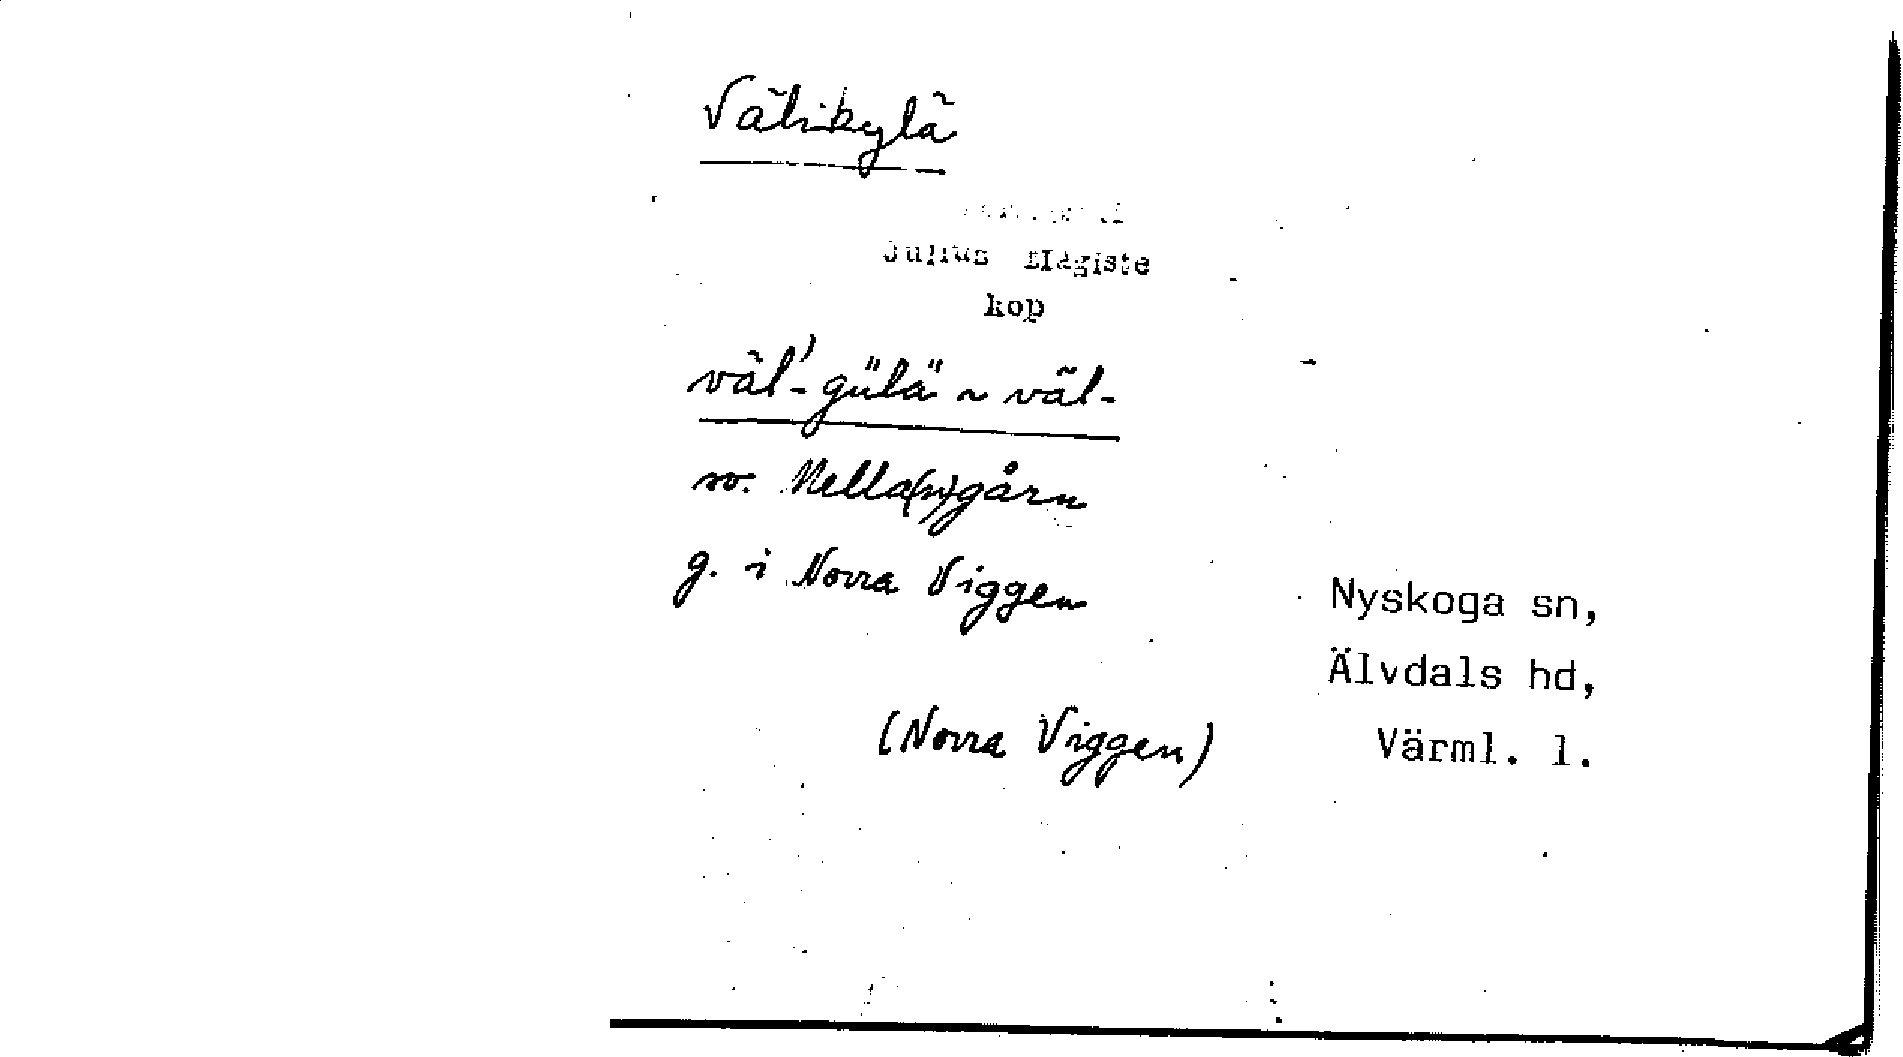 Välikylä
Julius Mägiste
kop
väl'-gülä ~ väl-
sv. Mella(n)gårn
g. i Norra Viggen
Nyskoga sn,
Älvdals hd,
(Norra Viggen)
Värml. l.